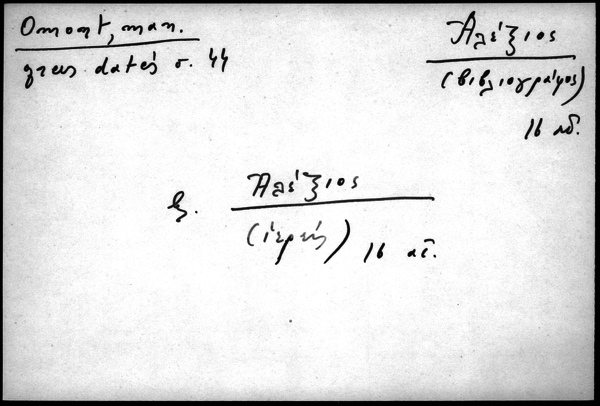 Omont, man.
grecs. datés σ. 44
Ἀλέξιος
(βιβλιογράφος)
16 αἰ.
β. Ἀλέξιος
(ἱερεύς) 16 αἰ.